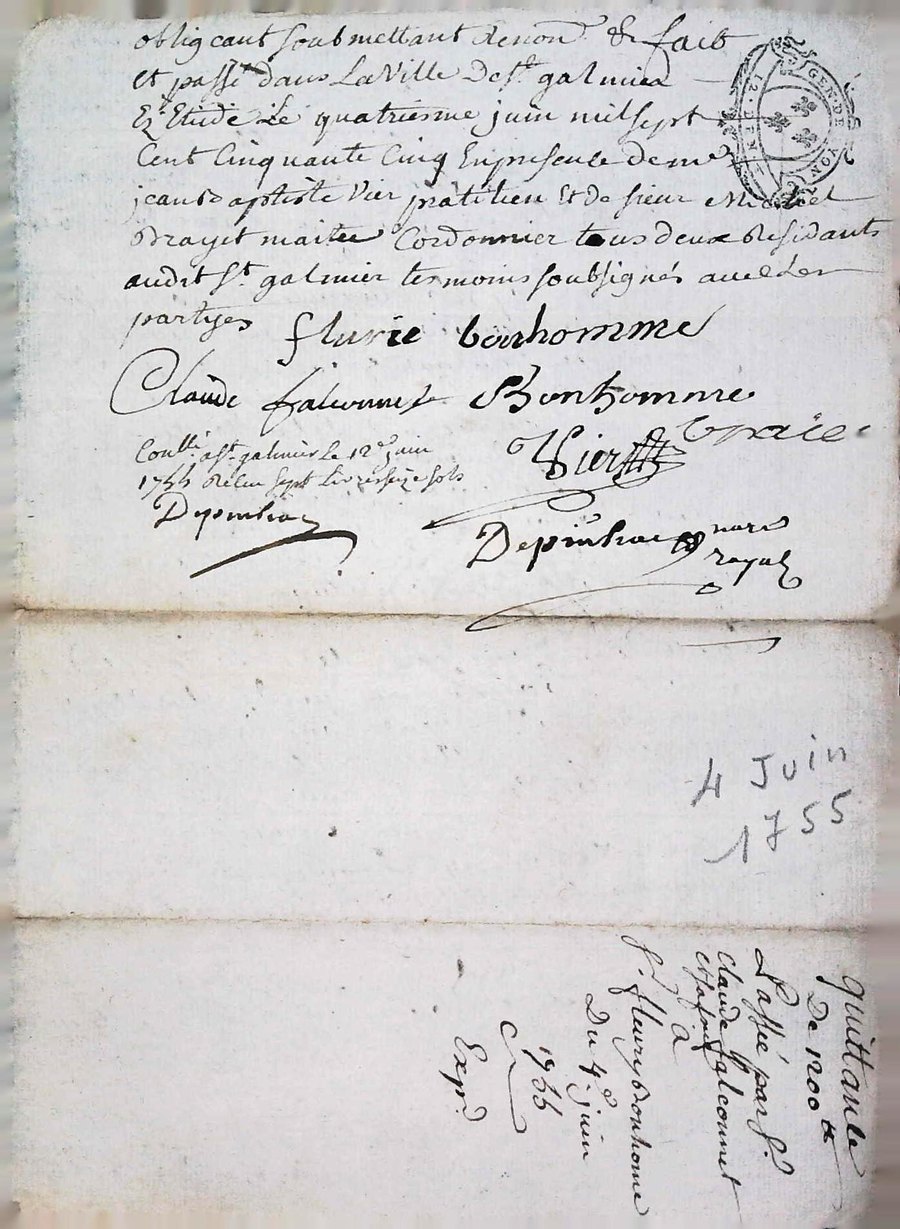 obligeant soubmettant Renon.t & fait
et passé dans La Ville De St. galmier
Et Etude Le quatriesme juin mil sept
Cent Cinquante Cinq En presence de me
jean Baptiste Vier patitien Et de sieur Michel
Brayet maitre Cordonnier tous deux Residants
audit St. galmier tesmoins soubsignés avec Les
partyes
flurie bonhomme
Claude falconnet Bonhomme
Vier braie
Conllé a St. galmier le 12e. juin
1755 Reçu sept Livres seize sols
Depinhac
Depinhac nore
royal
GEN. DE LYON
12. DEN
4 Juin
1755
quittance
De 1200 tt
Passé par Sr.
Claude falconnet
a
Sr. fleury Bonhome
Du 4e. juin
1755
Exp.d